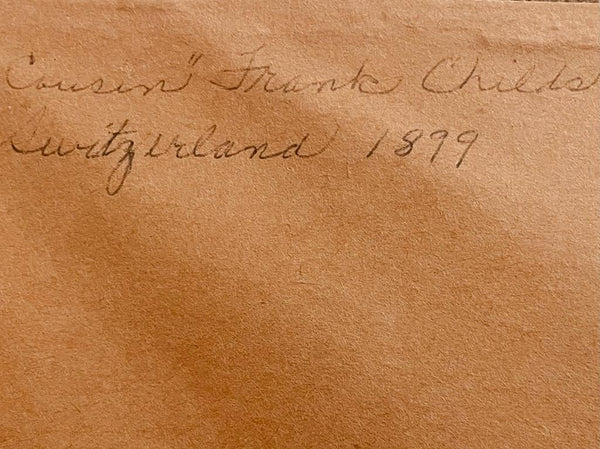 Cousin" Frank Childs
Switzerland 1899